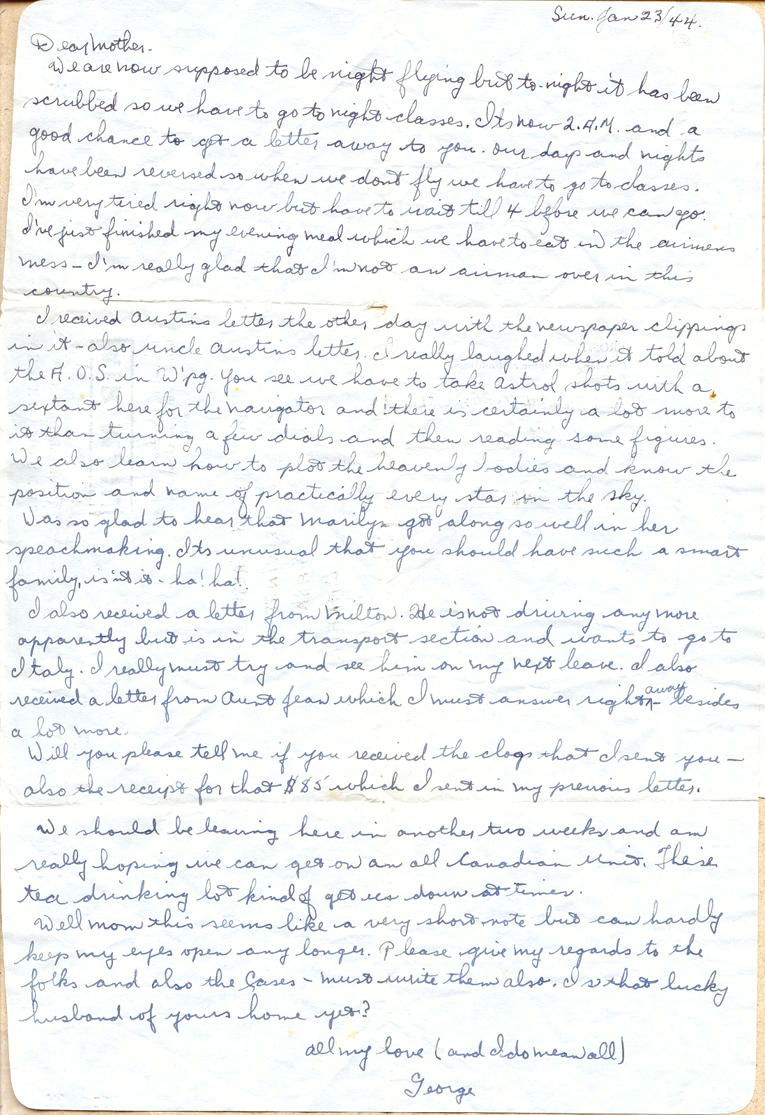 Sun. Jan 23/44.
Dear Mother.
We are now supposed to be night flying but to-night it has been
scrubbed so we have to go to night classes. Its now 2.A.M. and a
good chance to get a letter away to you. Our days and nights
have been reversed so when we dont fly we have to go to classes.
I'm very tired right now but have to wait till 4 before we can go.
I've just finished my evening meal which we have to eat in the airmens
mess - I'm really glad that I'm not an airman over in this
country.
I received Austins letter the other day with the newspaper clippings
in it - also uncle Austins letter. I really laughed when it told about
the A.O.S. in W'pg. You see we have to take Astrol shots with a
sextant here for the navigator and there is certainly a lot more to
it than turning a few dials and then reading some figures.
We also learn how to plot the heavenly bodies and know the
position and name of practically every star in the sky.
Was so glad to hear that Marilyn got along so well in her
speachmaking. Its unusual that you should have such a smart
family, isn't it - ha! ha!
I also received a letter from Milton. He is not driving any more
apparently but is in the transport section and wants to go to
Italy. I really must try and see him on my next leave. I also
received a letter from Aunt Jean which I must answer right away - besides
a lot more.
Will you please tell me if you received the clogs that I sent you -
also the receipt for that $85 which I sent in my previous letter.
We should be leaving here in another two weeks and am
really hoping we can get on an all Canadian Unit. These
tea drinking lot kind of get us down at times.
Well mom this seems like a very short note but can hardly
keep my eyes open any longer. Please give my regards to the
folks and also the Cases - must write them also. Is that lucky
husband of yours home yet?
All my love (and I do mean all)
George